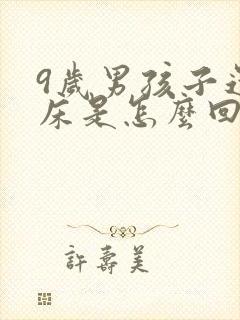 9歲男孩子還
床是怎麼回
許壽美